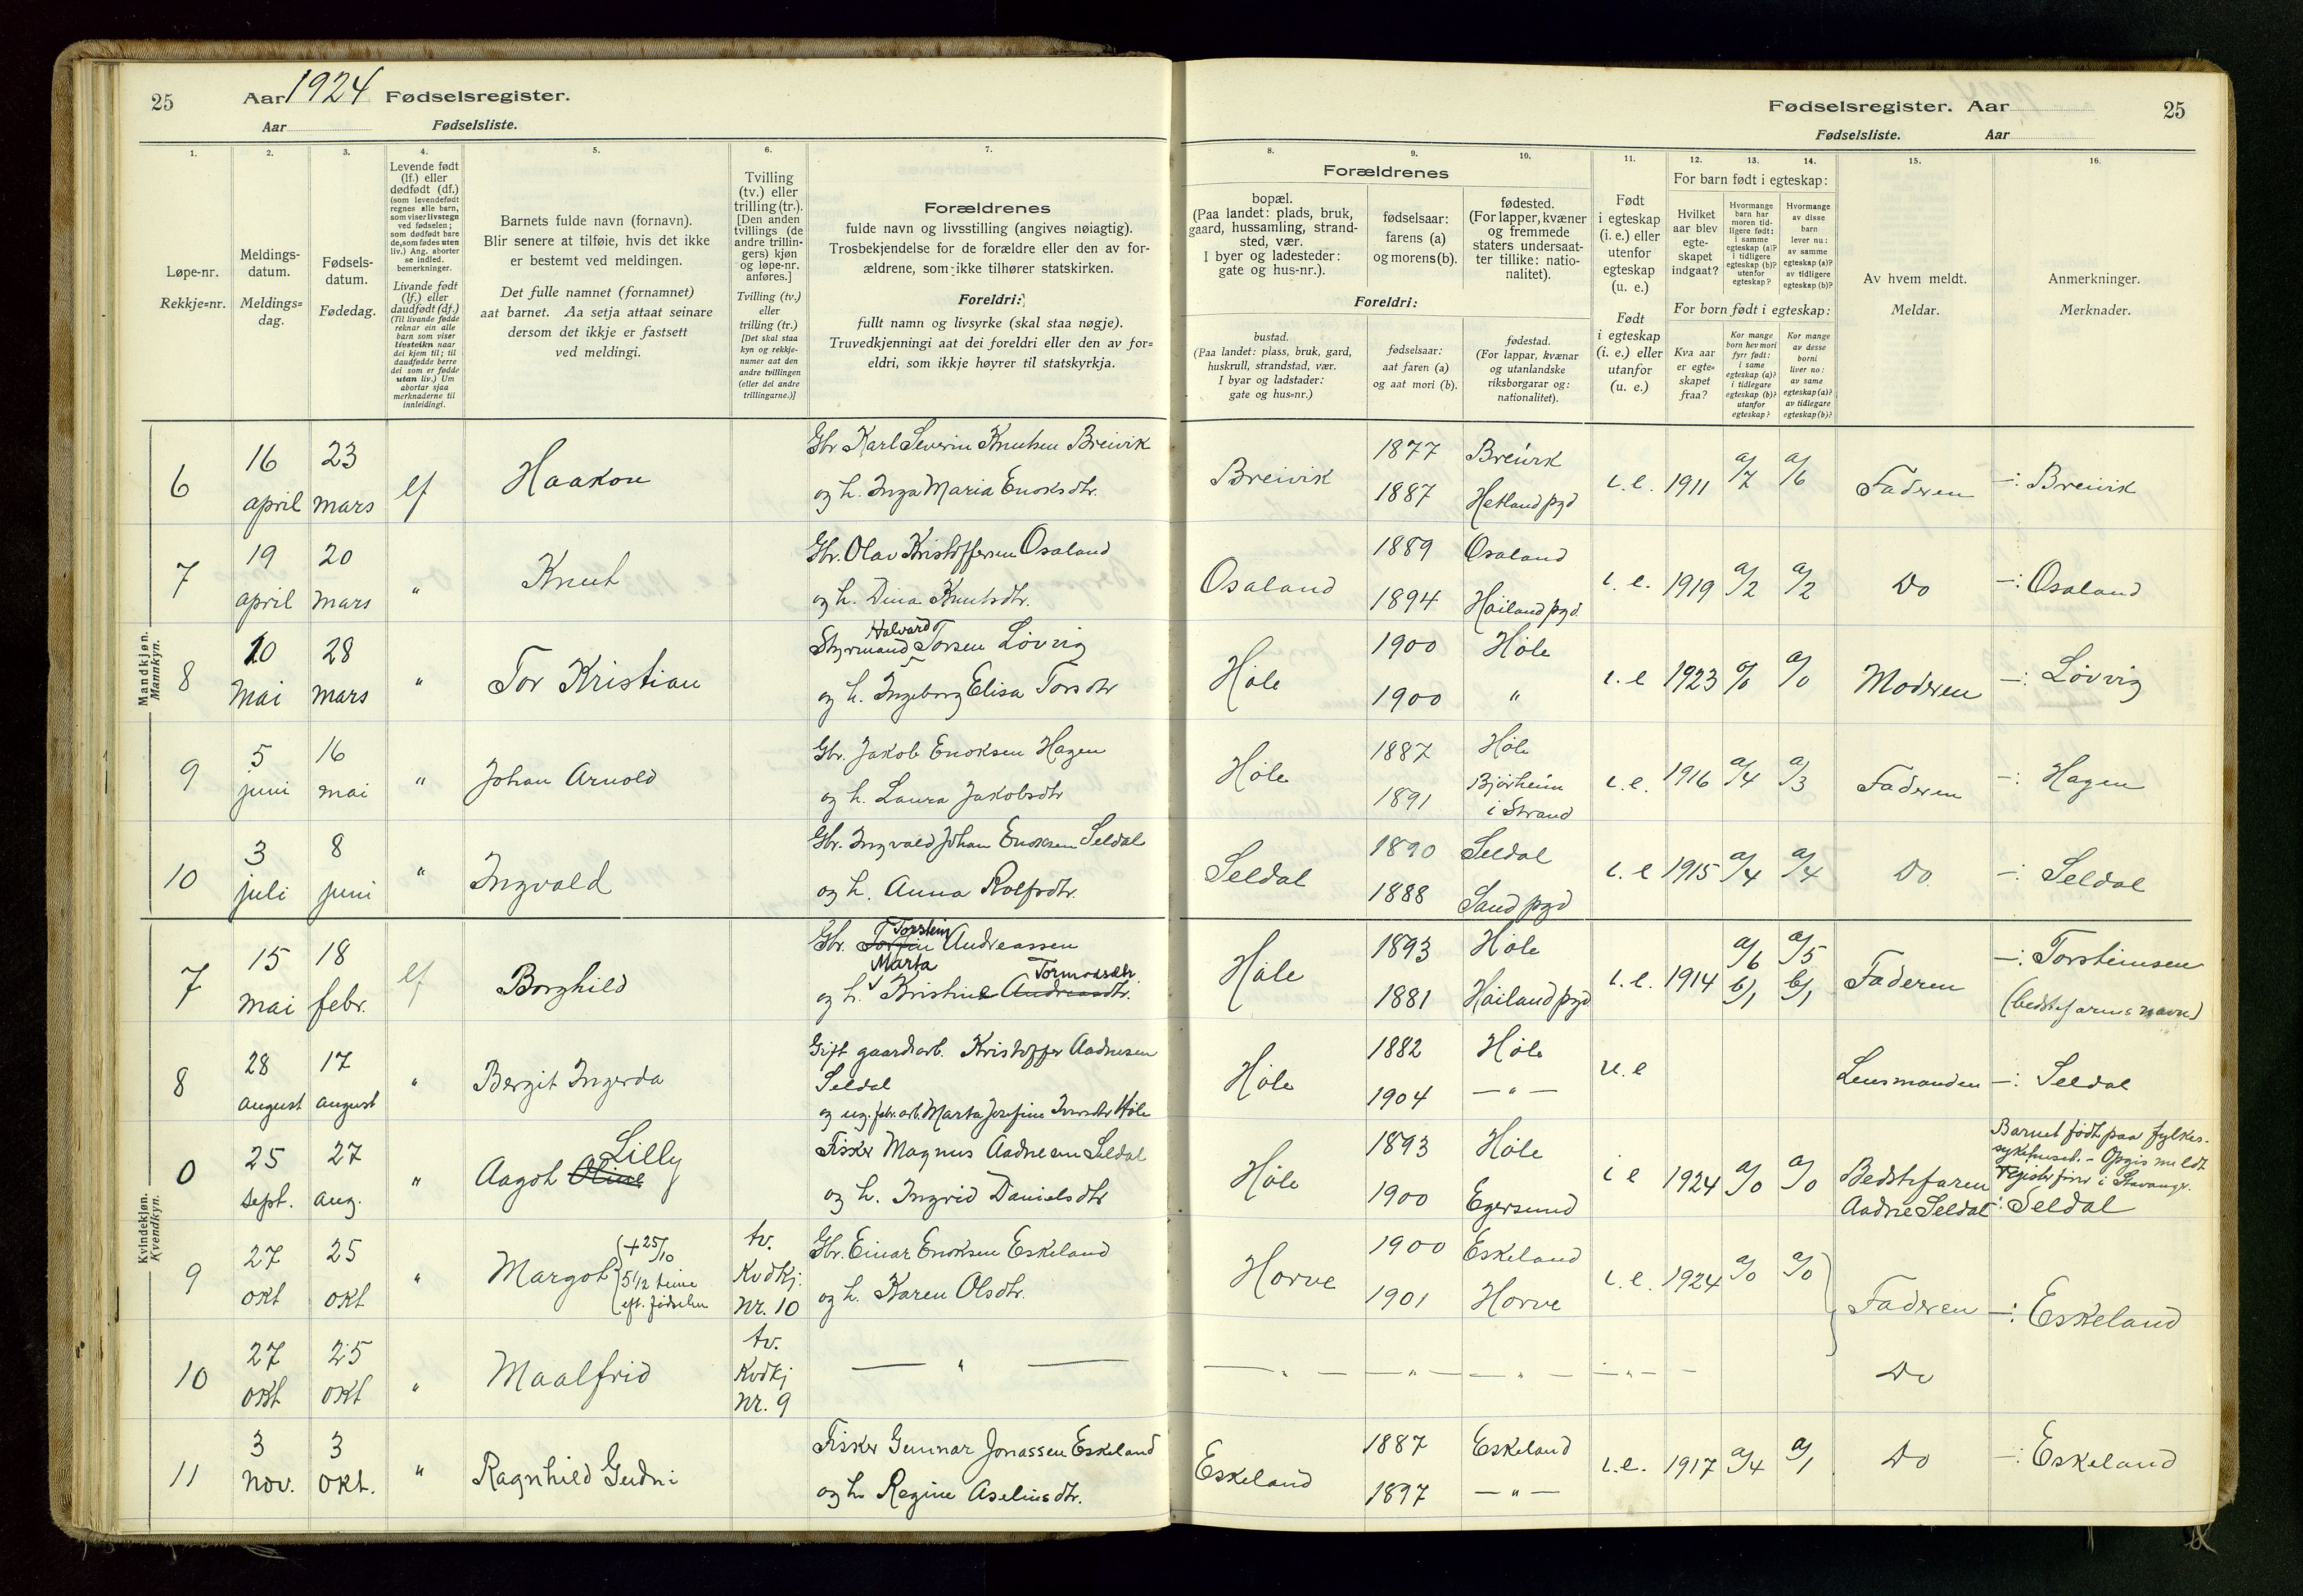 25 Aar 1924 Fødselsregister.
Aar Fødselsliste.
Fødselsregister. Aar 25
Fødselsliste. Aar
1. 2. 3. 4. 5. 6. 7.
Løpe-nr.
Rekkje=nr.
Meldings-
datum.
Meldings=
dag.
Fødsels-
datum.
Fødedag.
Levende født
(lf.) eller
dødfødt (df.)
(som levendefødt
regnes alle barn,
som viser livstegn
ved fødselen;
som dødfødt bare
de, som fødes uten
liv.) Ang. aborter
se indled.
bemerkninger.
Livande født
(lf.) eller
daudfødt (df.)
(Til livande fødde
reknar ein alle
barn som viser
livsteikn naar
dei kjem til; til
daudfødde berre
dei som er fødde
utan liv.) Um
abortar sjaa
merknaderne til
innleidingi.
Barnets fulde navn (fornavn).
Blir senere at tilføie, hvis det ikke
er bestemt ved meldingen.
Det fulle namnet (fornamnet)
aat barnet. Aa setja attaat seinare
dersom det ikkje er fastsett
ved meldingi.
Tvilling
(tv.) eller
trilling (tr.).
[Den anden
tvillings (de
andre trillin-
gers) kjøn
og løpe-nr.
anføres.]
Tvilling (tv.)
eller
trilling (tr.)
[Det skal staa
kyn og rekkje-
numer aat den
andre tvillingen
(eller dei andre
trillingarne.)]
Forældrenes
fulde navn og livsstilling (angives nøiagtig).
Trosbekjendelse for de forældre eller den av for-
ældrene, som ikke tilhører statskirken.
Foreldri:
fullt namn og livsyrke (skal staa nøgje).
Truvedkjenningi aat dei foreldri eller den av for=
eldri, som ikkje høyrer til statskyrkja.
8. 9. 10. 11. 12. 13. 14. 15. 16.
Forældrenes
bopæl.
(Paa landet: plads, bruk,
gaard, hussamling, strand-
sted, vær.
I byer og ladesteder:
gate og hus-nr.).
fødselsaar:
farens (a)
og morens (b).
fødested.
(For lapper, kvæner
og fremmede
staters undersaat-
ter tillike: natio-
nalitet).
Foreldri:
bustad.
(Paa landet: plass, bruk, gard,
huskrull, strandstad, vær.
I byar og ladstader:
gate og hus=nr.)
fødselsaar:
aat faren (a)
og aat mori (b).
fødestad.
(For lappar, kvænar
og utanlandske
riksborgarar og:
nationalitet).
Født
i egteskap
(i. e.) eller
utenfor
egteskap
(u. e.)
Født
i egteskap
(i. e.) eller
utanfor
(u. e.)
For barn født i egteskap:
Hvilket
aar blev
egte-
skapet
indgaat?
Hvormange
barn har
moren tid-
ligere født:
i samme
egteskap (a)?
i tidligere
egteskap (b)?
utenfor
egteskap?
Hvormange
av disse
barn
lever nu:
av samme
egteskap (a)?
av tidligere
egteskap (b)?
For born født i egteskap:
Kva aar
er egte=
skapet
fraa?
Kor mange
born hev mori
fyrr født:
i same
egteskap (a)?
i tidlegare
egteskap (b)?
utanfor
egteskap?
Kor mange
av desse
borni
liver no:
av same
egteskap (a)?
av tidlegare
egteskap (b)?
Av hvem meldt.
Meldar.
Anmerkninger.
Merknader.
Mandkjøn.
Mannkyn.
6 16 april 23 mars lf Haakon
Gbr Karl Severin Knutsen Breivik
og h. Inga Maria Enoksdtr.
Breivik 1877 Breivik
1887 Hetland pgd
i. e. 1911 a/7 a/6 Faderen -: Breivik
7 19 april 20 mars " Knut
Gbr. Olav Kristoffersen Osaland
og h. Dina Knutsdtr.
Osaland 1889 Osaland
1894 Høiland pgd.
i. e. 1919 a/2 a/2 Do -: Osaland
8 10 mai 28 mars " Tor Kristian
Halvard
Styrmand Torsen Løvvig
og h. Ingeborg Elisa Torsdtr
Høle 1900 Høle
1900 "
i. e 1923 a/0 a/0 Moderen -: Løvvig
9 5 juni 16 mai " Johan Arnold
Gbr. Jakob Enoksen Hagen
og h. Laura Jakobsdtr
Høle 1887 Høle
1891 Bjørheim
i Strand
i. e. 1916 a/4 a/3 Faderen -: Hagen
10 3 juli 8 juni " Ingvald
Gbr. Ingvald Johan Enoksen Seldal
og h. Anna Rolfsdtr.
Seldal 1890 Seldal
1888 Sand pgd
i. e 1915 a/4 a/4 Do. -: Seldal
Kvindekjøn.
Kvendkyn.
7 15 mai 18 febr. lf Borghild
Torstein
Gbr. Torfin Andreassen
Marta Tormodsdtr
og h. Kristine Andreasdtr.
Høle 1893 Høle
1881 Høiland pgd
i. e. 1914 a/6 b/1 a/5 b/1 Faderen -: Torsteinsen
(bedstefarens navn)
8 28 august 17 august " Bergit Ingerda
Gift gaardarb. Kristoffer Aadnesen
Seldal
og ug. fabr. arb. Marta Josefine Iversdtr Høle
Høle 1882 Høle
1904 - " -
u. e Lensmanden -: Seldal
0 25 sept. 27 aug. " Aagot Oline Lilly
Fisker Magnus Aadnesen Seldal
og h. Ingrid Danielsdtr
Høle 1893 Høle
1900 Egersund
i e 1924 a/0 a/0 Bedstefaren
Aadne Seldal
Barnet født paa fylkes-
sykehuset. - Opgis meldt
registerfører i Stavanger.
: Seldal
9 27 okt 25 okt " Margot
+ 25/10
5 1/2 time
eft. fødselen
tv.
Kvdkj.
nr. 10
Gbr. Einar Enoksen Eskeland
og h. Karen Olsdtr.
Horve 1900 Eskeland
1901 Horve
i. e. 1924 a/0 a/0 Faderen -: Eskeland
10 27 okt 25 okt " Maalfrid
tv.
Kvdkj
nr. 9
— " —
- " - - " - - " - - " - - Do
11 3 nov. 3 okt. " Ragnhild Gudni
Fisker Gunnar Jonassen Eskeland
og h Regine Aseliusdtr.
Eskeland 1887 Eskeland
1897 - " -
i. e. 1917 a/4 a/1 Do -: Eskeland